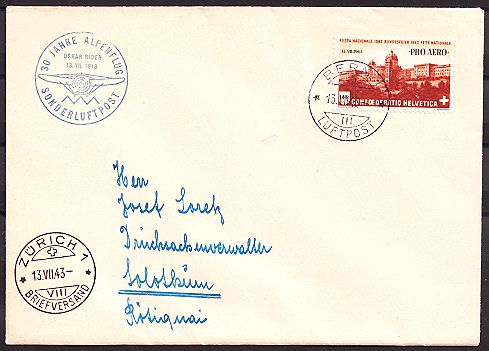 30 JAHRE ALPENFLUG
OSKAR BIDER
13. VII. 1913
SONDERLUFTPOST
FESTA NAZIONALE 1943 BUNDESFEIER 1943 FETE NATIONALE
13.VII.1943
PRO AERO
CONFOEDERATIO HELVETICA
BERN
13.
III
LUFTPOST
Herr
Josef Loretz
Drucksachenverwalter
Solothurn
Rötiquai
ZÜRICH 1
13.VII.43-
VIII
BRIEFVERSAND